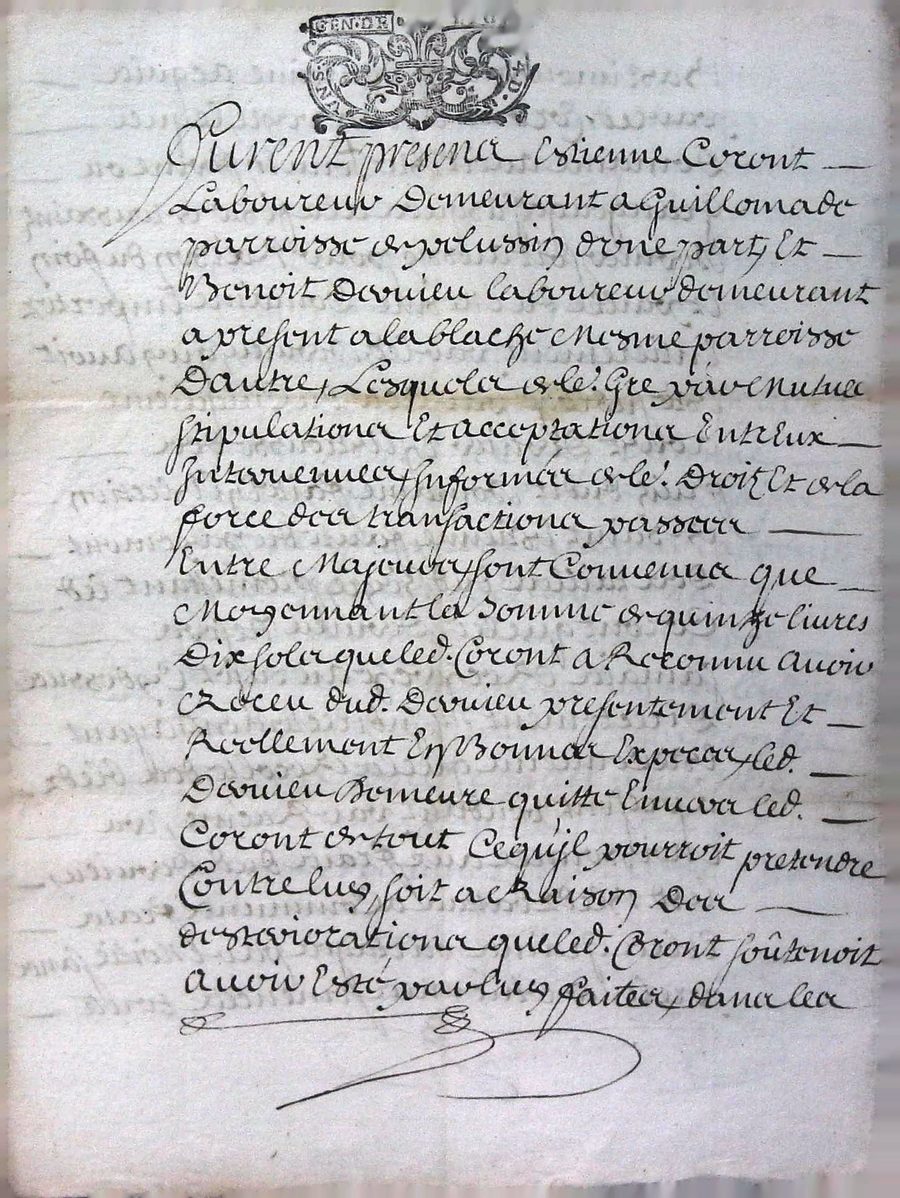 GEN·DE
Furent presens Estienne Coront
Laboureur Demeurant a Guillomade
parroisse de pelussin d'une part Et
Benoit Dervieu laboureur demeurant
a present a la blache mesme parroisse
D'autre, Lesquels de le.r Gré par mutues
stipulations Et acceptations Entreux
Intervenues Informés de le.r Droit Et de la
force des transactions passees
Entre Majeurs, sont Convenus que
Moyennant la Somme de quinze livres
Dix sols que led. Coront a Reconnu avoir
Receu dud. Dervieu presentement Et
Reellement En Bonnes Especes, led.
Dervieu Demeure quitte Envers led.
Coront de tout Cequ'jl pourroit pretendre
Contre luy, soit a Raison Des
desteriorations que led. Coront soûtenoit
avoir Esté par luy faites, dans les